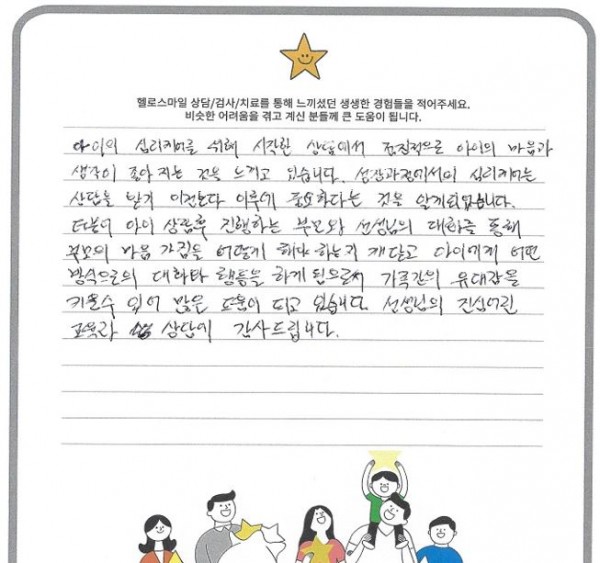 헬로스마일 상담/검사/치료를 통해 느끼셨던 생생한 경험들을 적어주세요.
비슷한 어려움을 겪고 계신 분들께 큰 도움이 됩니다.
아이의 심리케어를 위해 시작한 상담에서 점진적으로 아이의 마음과
생각이 좋아 지는 것을 느끼고 있습니다. 성장과정에서의 심리케어는
상담을 받기 이전보다 이후에 중요하다는 것을 알게되었습니다.
더불어 아이 상담후 진행하는 부모와 선생님의 대화를 통해
부모의 마음 가짐을 어떻게 해야 하는지 깨닫고 아이에게 어떤
방식으로의 대화와 행동을 하게 됨으로써 가족간의 유대감을
키울수 있어 많은 도움이 되고 있습니다. 선생님의 진심어린
교육과 상담에 감사드립니다.